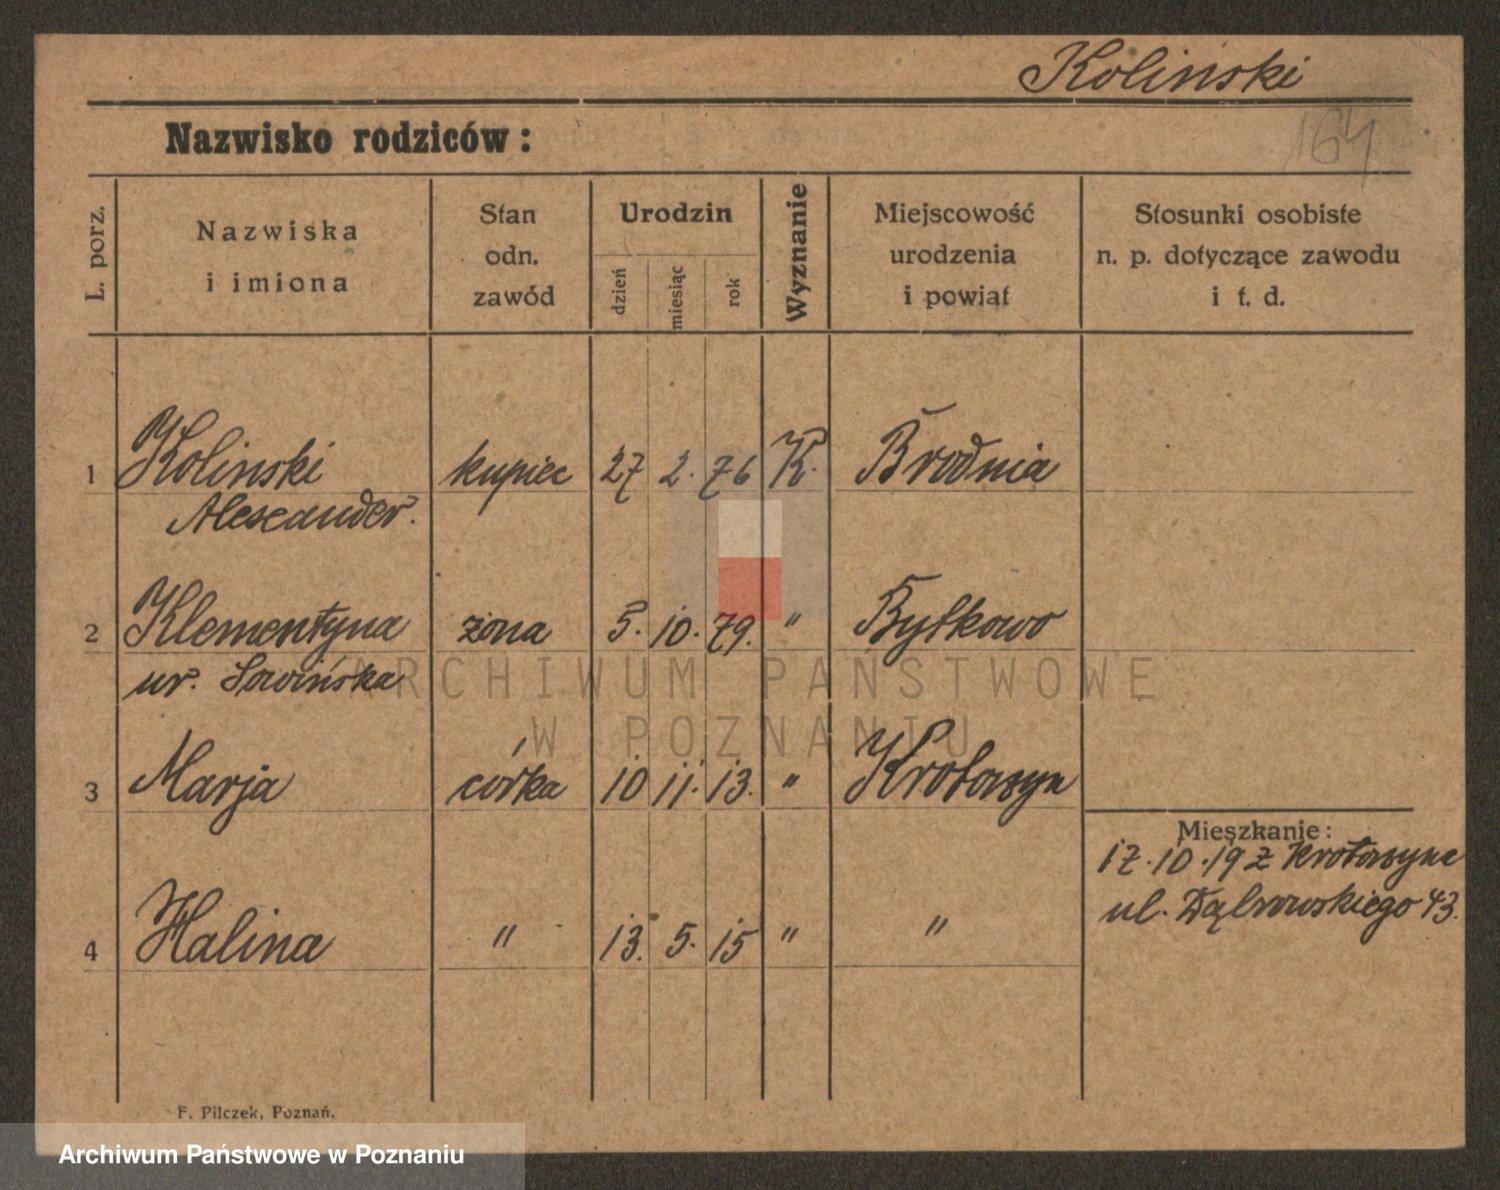 Koliński
164
Nazwisko rodziców:
L. porz.
Nazwiska
i imiona
Stan
odn.
zawód
Urodzin
dzień
miesiąc
rok
Wyznanie
Miejscowość
urodzenia
i powiat
Stosunki osobiste
n. p. dotyczące zawodu
i t. d.
1 Kolinski kupiec 27 2. 76 K. Brodnia
Alexander.
2 Klementyna żona 5. 10. 79. " Bytkowo
ur. Sowińska
3 Marja córka 10 11. 13. " Krotoszyn
Mieszkanie:
17.10.19 z Krotoszyna
ul. Dąbrowskiego 43.
4 Halina " 13. 5. 15 " "
F. Pilczek, Poznań.
ARCHIWUM PAŃSTWOWE
W POZNANIU
Archiwum Państwowe w Poznaniu